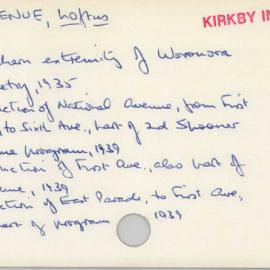 ENUE, Loftus
KIRKBY IN
hern extremity of Woronora
etery, 1935
uction of National Avenue, from First
, to Sixth Ave., part of 2nd Spooner
me program, 1939
uction of First Ave., also part of
me, 1939
ction of East Parade, to First Ave,
part of program 1939